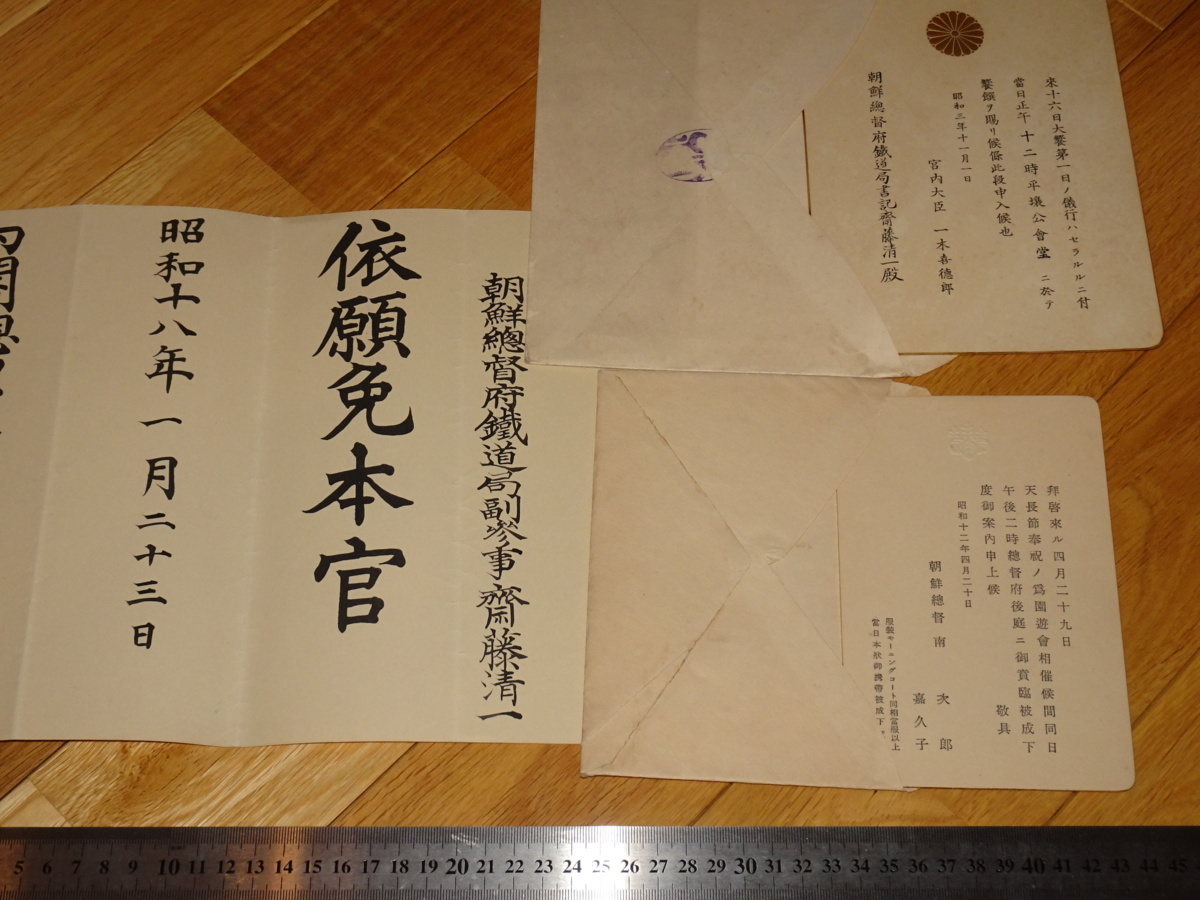 來十六日大饗第一日ノ儀行ハセラルルニ付
當日正午十二時平壤公會堂ニ於テ
饗饌ヲ賜リ候條此段申入候也
昭和三年十一月一日
宮内大臣 一木喜德郎
朝鮮總督府鐵道局書記齋藤清一殿
朝鮮總督府鐵道局副參事齋藤清一
依願免本官
昭和十八年一月二十三日
拜啓來ル四月二十九日
天長節奉祝ノ爲園遊會相催候間同日
午後二時總督府後庭ニ御賁臨被成下
度御案内申上候 敬具
昭和十二年四月二十日
朝鮮總督 南 次郎
嘉久子
服裝モーニングコート同相當服以上
當日本狀御携帶被成下度
5 6 7 8 9 10 11 12 13 14 15 16 17 18 19 20 21 22 23 24 25 26 27 28 29 30 31 32 33 34 35 36 37 38 39 40 41 42 43 44 45